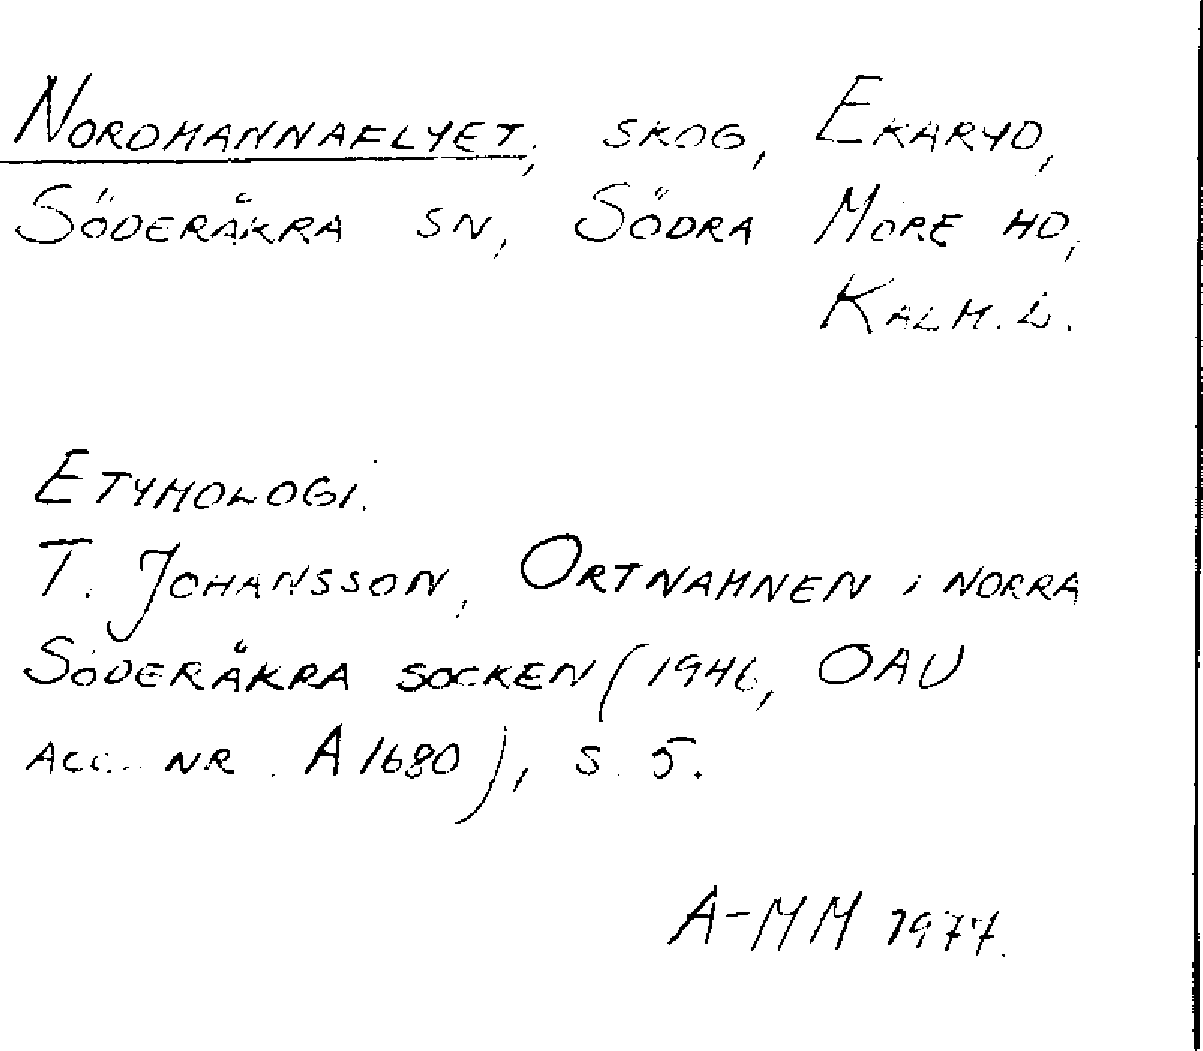 NORDMANNAFLYET, SKOG, EKARYD,
SÖDERÅKRA SN, SÖDRA MÖRE HD,
KALM. L.
ETYMOLOGI.
T. JOHANSSON, ORTNAMNEN I NORRA
SÖDERÅKRA SOCKEN (1946, OAU
ACC. NR. A 1680), S. 5.
A-MM 1977.